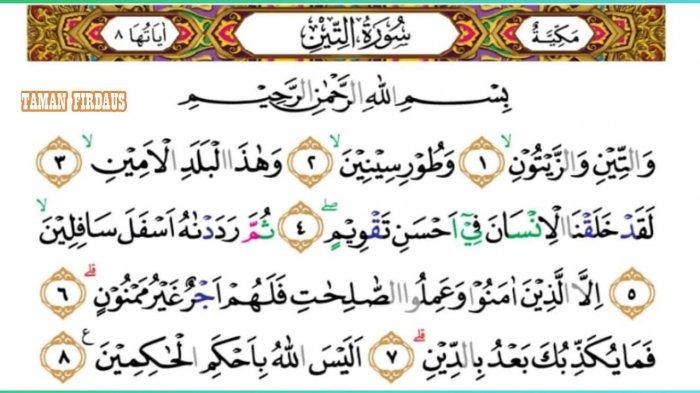 مَكِّيَّةٌ سُورَةُ التِّيْنِ اٰيَاتُهَا ٨
TAMAN FIRDAUS
بِسْمِ اللهِ الرَّحْمٰنِ الرَّحِيْمِ
وَالتِّيْنِ وَالزَّيْتُوْنِۙ ١ وَطُوْرِ سِيْنِيْنَۙ ٢ وَهٰذَا الْبَلَدِ الْاَمِيْنِۙ ٣
لَقَدْ خَلَقْنَا الْاِنْسَانَ فِيْٓ اَحْسَنِ تَقْوِيْمٍۖ ٤ ثُمَّ رَدَدْنٰهُ اَسْفَلَ سَافِلِيْنَۙ
٥ اِلَّا الَّذِيْنَ اٰمَنُوْا وَعَمِلُوا الصّٰلِحٰتِ فَلَهُمْ اَجْرٌ غَيْرُ مَمْنُوْنٍۗ ٦
فَمَا يُكَذِّبُكَ بَعْدُ بِالدِّيْنِۗ ٧ اَلَيْسَ اللهُ بِاَحْكَمِ الْحٰكِمِيْنَ ࣖ ٨